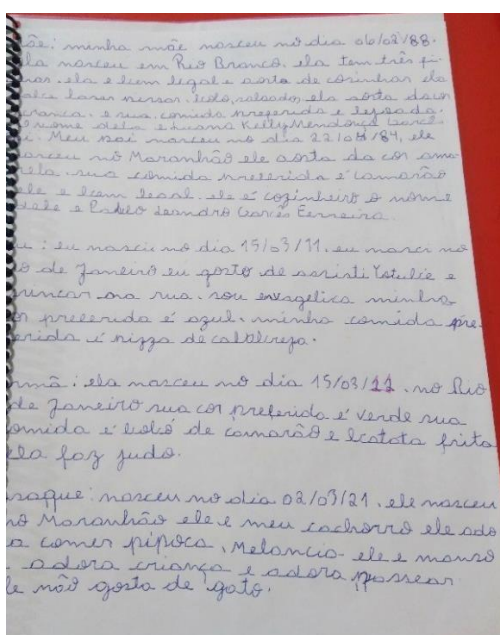 ãe: minha mãe nasceu no dia 06/02/88.
la nasceu em Rio Branco. ela tem três fi-
ela e bem legal e gosta de cozinhar ela
bolo, salgado, ela gosta da cor
branca. e sua comida preferida e feijoada.
o nome dela e Luana Kelly Mendonça
i: Meu pai nasceu no dia 22/04/84, ele
nasceu no Maranhão ele gosta da cor ama-
rela. sua comida preferida é camarão
ele e bem legal. ele é cozinheiro o nome
dele e Pablo Leandro Ferreira.
u: eu nasci no dia 15/03/11. eu nasci no
io de Janeiro eu gosto de assisti Yotube e
brincar na rua. sou evagelica minha
or preferida é azul. minha comida pre-
erida é pizza de calabreza.
rmã: ela nasceu no dia 15/03/11. no Rio
de Janeiro sua cor preferida é verde sua
omida é bobó de camarão e batata frita
ela faz judo.
raque: nasceu no dia 02/03/21. ele nasceu
no Maranhão ele e meu cachorro ele ado
a comer pipoca, Melancia ele e manso
e adora criança e adora passear
le não gosta de gato.